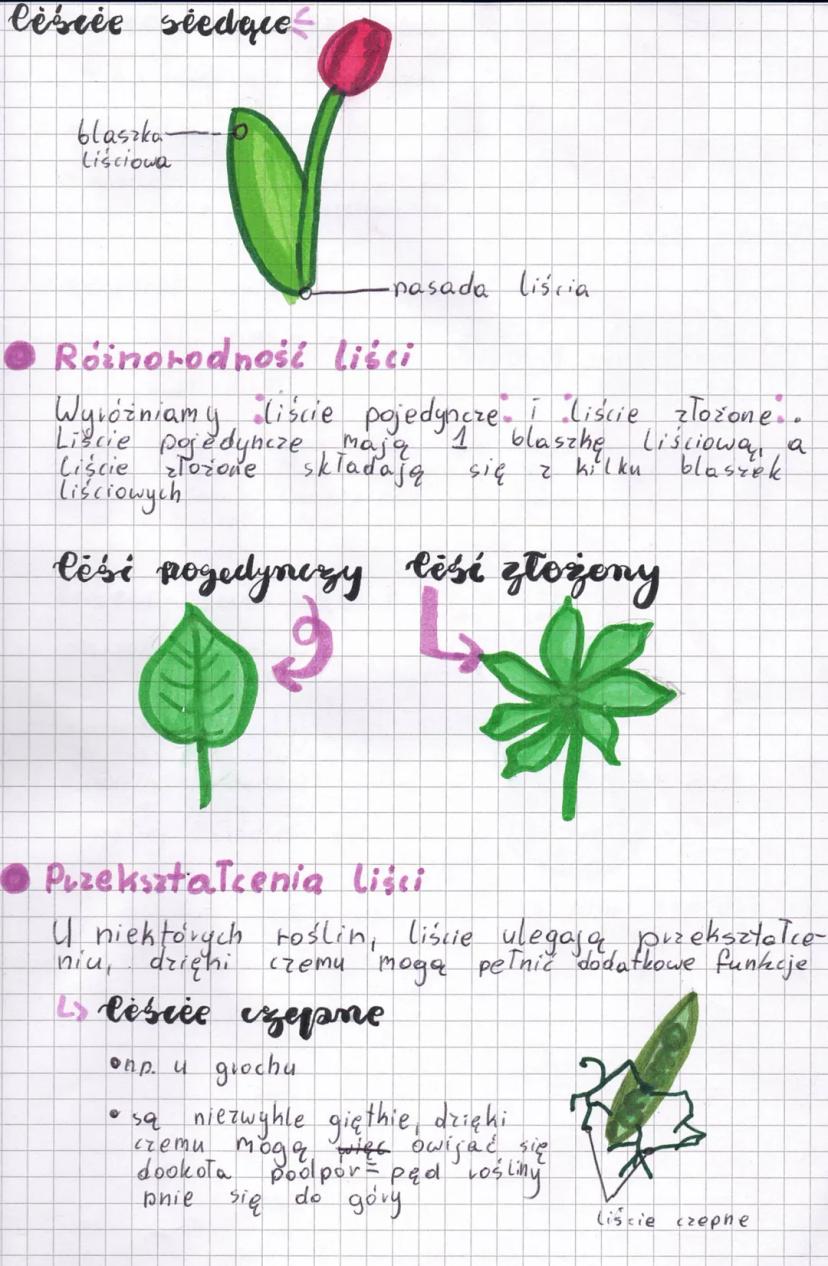 liście siedzące
blaszka
liściowa
nasada liścia
Różnorodność liści
Wyróżniamy :liście pojedyncze: i :liście złożone:.
Liście pojedyncze mają 1 blaszkę liściową, a
liście złożone składają się z kilku blaszek
liściowych
liść pojedynczy
liść złożony
Przekształcenia liści
U niektórych roślin, liście ulegają przekształce-
niu, dzięki czemu mogą pełnić dodatkowe funkcje
↳ liście czepne
•np. u grochu
• są niezwykle giętkie, dzięki
czemu mogą owijać się
dookoła podpór = pęd rośliny
pnie się do góry
liście czepne